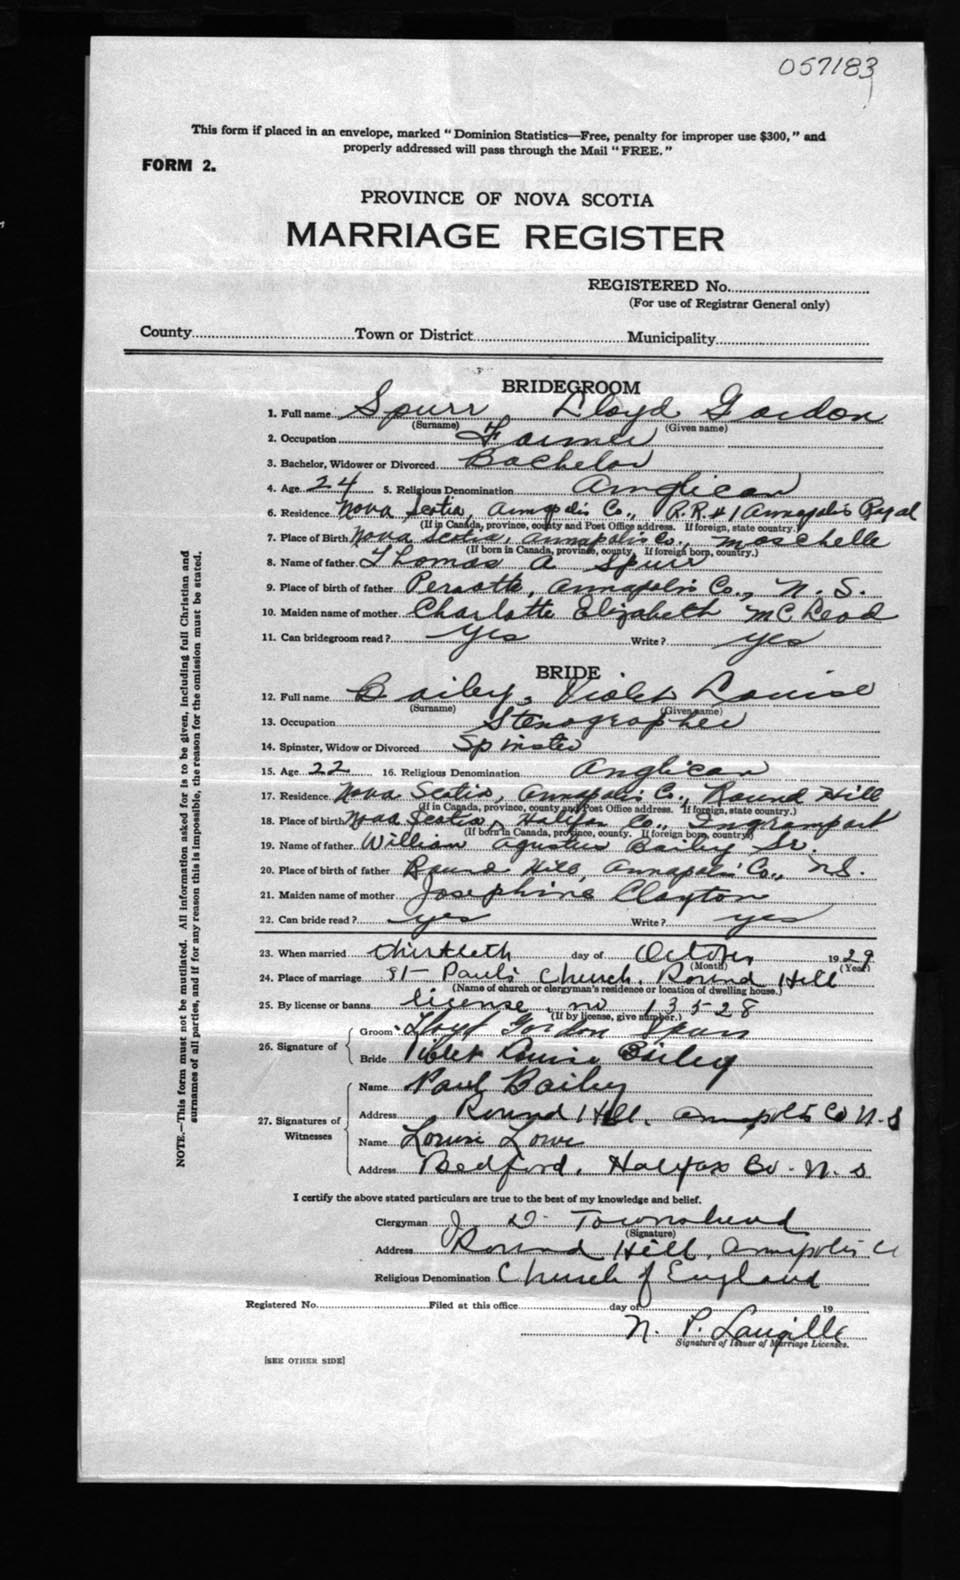 057183
This form if placed in an envelope, marked "Dominion Statistics—Free, penalty for improper use $300," and
properly addressed will pass through the Mail "FREE."
FORM 2.
PROVINCE OF NOVA SCOTIA
MARRIAGE REGISTER
REGISTERED No.
(For use of Registrar General only)
County Town or District Municipality
BRIDEGROOM
1. Full name Spurr, Lloyd Gordon
(Surname) (Given name)
2. Occupation Farmer
3. Bachelor, Widower or Divorced Bachelor
4. Age 24 5. Religious Denomination Anglican
6. Residence Nova Scotia, Annapolis Co., R.R # 1 Annapolis Royal
(If in Canada, province, county and Post Office address. If foreign, state country.)
7. Place of Birth Nova Scotia, Annapolis Co., Moschelle
(If born in Canada, province, county. If foreign born, country.)
8. Name of father Thomas A Spurr
9. Place of birth of father Perotte, Annapolis Co., N. S.
10. Maiden name of mother Charlotte Elizabeth McLeod
11. Can bridegroom read? yes Write? yes
BRIDE
12. Full name Bailey, Violet Louise
(Surname) (Given name)
13. Occupation Stenographer
14. Spinster, Widow or Divorced Spinster
15. Age 22 16. Religious Denomination Anglican
17. Residence Nova Scotia, Annapolis Co., Round Hill
(If in Canada, province, county and Post Office address. If foreign, state country.)
18. Place of birth Nova Scotia, Halifax Co., Ingramport
(If born in Canada, province, county. If foreign born, country)
19. Name of father William Agustus Bailey Sr.
20. Place of birth of father Round Hill, Annapolis Co., N.S.
21. Maiden name of mother Josephine Clayton
22. Can bride read? yes Write? yes
23. When married thirtieth day of October 1929
(Month) (Year)
24. Place of marriage St Paul's Church, Round Hill
(Name of church or clergyman's residence or location of dwelling house.)
25. By license or banns license no 13528
(If by license, give number.)
26. Signature of Groom Lloyd Gordon Spurr
Bride Violet Louise Bailey
27. Signatures of Witnesses Name Paul Bailey
Address Round Hill, Annapolis Co N.S
Name Louise Lowe
Address Bedford, Halifax Co. N. S
I certify the above stated particulars are true to the best of my knowledge and belief.
Clergyman J. D. Townshend
(Signature)
Address Round Hill, Annapolis Co
Religious Denomination Church of England
Registered No. Filed at this office day of 19
N. P. Langille
Signature of Issuer of Marriage Licenses.
[SEE OTHER SIDE]
NOTE.—This form must not be mutilated. All information asked for is to be given, including full Christian and
surnames of all parties, and if for any reason this is impossible, the reason for the omission must be stated.